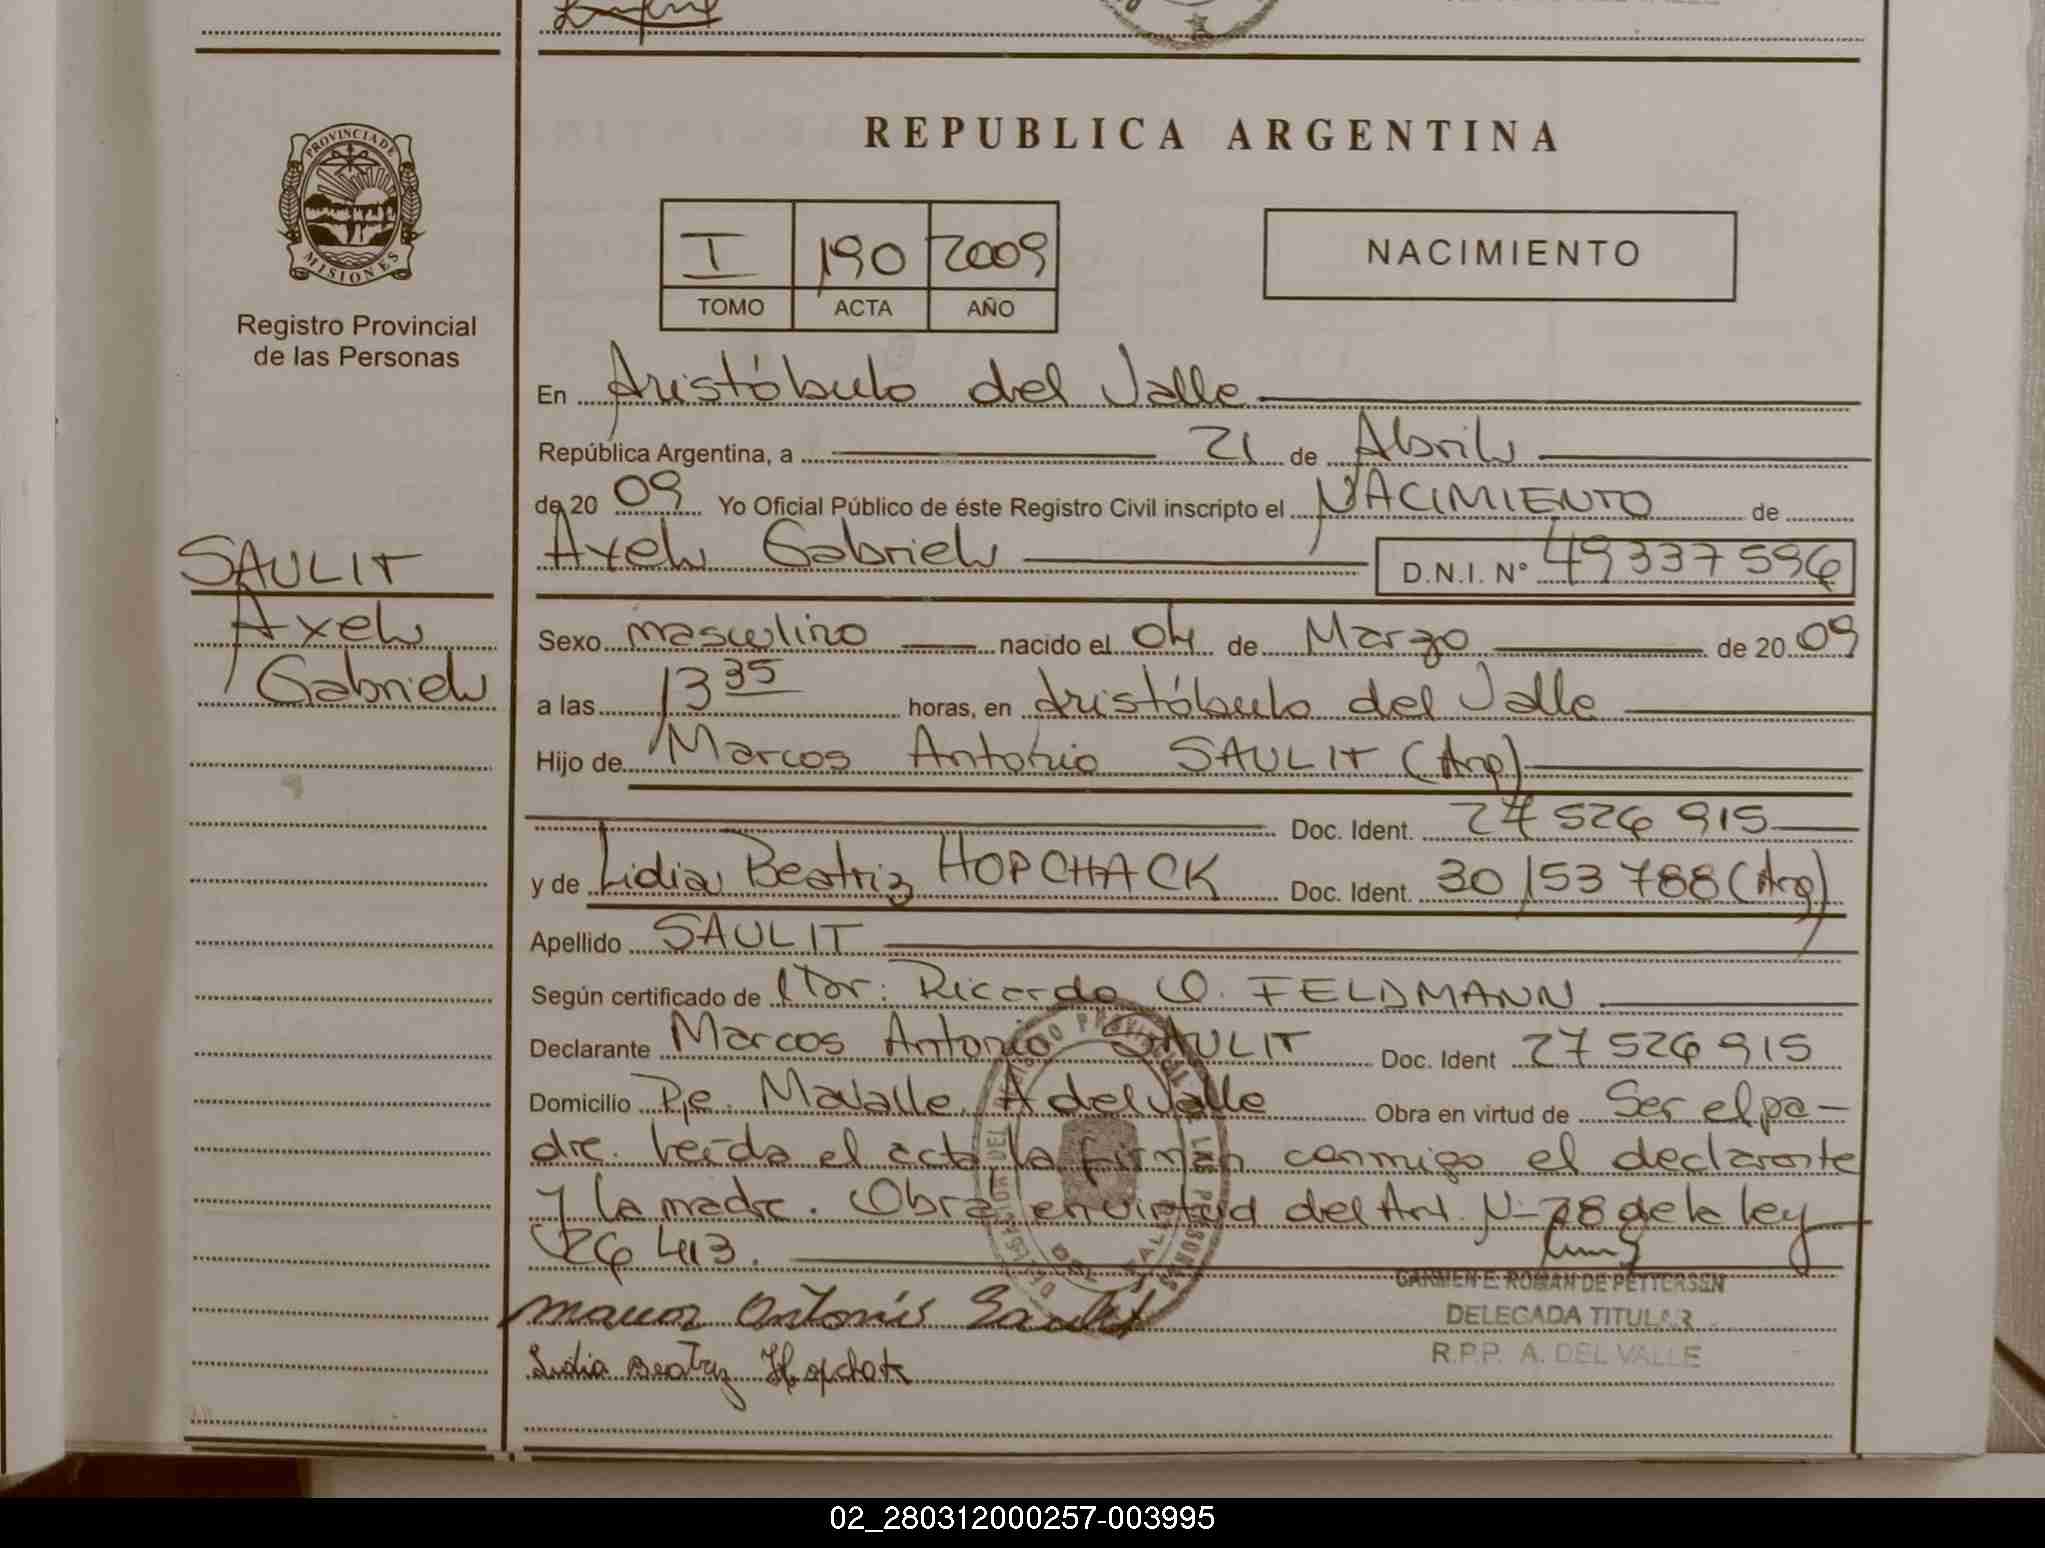 REPUBLICA ARGENTINA
PROVINCIA DE
MISIONES
Registro Provincial
de las Personas
I 190 2009
TOMO ACTA AÑO
NACIMIENTO
En Aristóbulo del Valle
República Argentina, a 21 de Abril
de 20 09 Yo Oficial Público de éste Registro Civil inscripto el NACIMIENTO de
Axel Gabriel D.N.I. Nº 49337596
SAULIT
Axel
Gabriel
Sexo masculino nacido el 04 de Marzo de 20 09
a las 13 35 horas, en Aristóbulo del Valle
Hijo de Marcos Antonio SAULIT (Arg)
Doc. Ident. 27 526 915
y de Lidia Beatriz HOPCHACK Doc. Ident. 30 153 788 (Arg)
Apellido SAULIT
Según certificado de Dr. Ricardo O. FELDMANN
Declarante Marcos Antonio SAULIT Doc. Ident 27 526 915
Domicilio Pje. Mavalle. A del Valle Obra en virtud de Ser el pa-
dre. Leída el acta, la firman conmigo el declarante
y la madre. Obra en virtud del Art. Nº 28 de la ley
26 413.
Marcos Antonio Saulit
CARMEN E. ROMAN DE PETTERSEN
DELEGADA TITULAR
R.P.P. A. DEL VALLE
Lidia Beatriz Hopchak
02_280312000257-003995